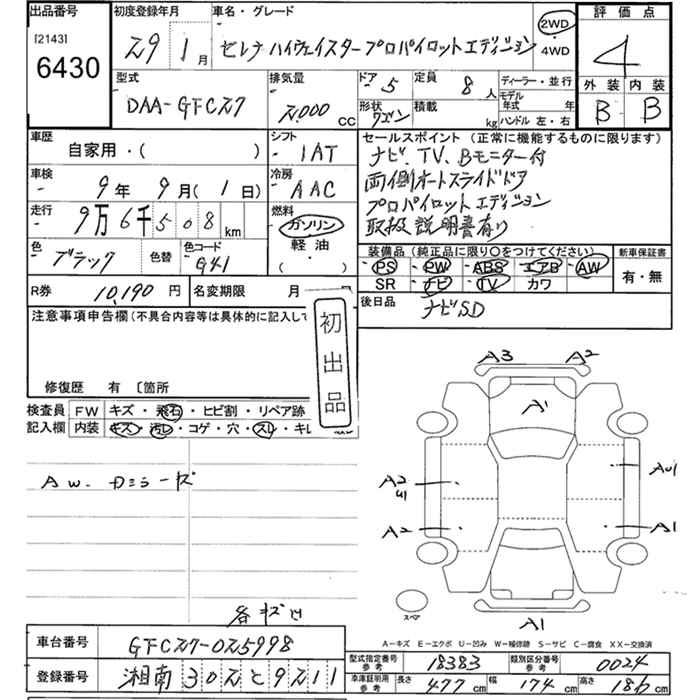 出品番号 初度登録年月 車名・グレード 評価点
[2143] 6430 29年 1月 セレナ ハイウェイスタープロパイロットエディション 2WD・4WD 4
外装 内装
B B
型式 排気量 ドア 定員 ディーラー・並行
DAA-GFC27 2000CC 5 8人 モデル年式 年
形状 ワゴン 積載 kg ハンドル 左・右
車歴 自家用・( ) シフト IAT セールスポイント(正常に機能するものに限ります)
ナビ、TV、Bモニター付
車検 9年9月(1日) 冷房 AAC 両側オートスライドドア
プロパイロットエディション
走行 9万6千508km 燃料 ガソリン・軽油・( ) 取扱説明書有り
色 ブラック 色替 色コード G41 装備品(純正品に限り○をつけてください) 新車保証書
・PS・PW・ABS・エアB・AW 有・無
SR ナビ・TV・カワ
R券 10,190円 名変期限 月 後日品 ナビSD
注意事項申告欄(不具合内容等は具体的に記入して
初出品
修復歴 有 〔箇所
検査員 FW キズ・飛石・ヒビ割・リペア跡
記入欄 内装 キズ・汚レ・コゲ・穴・スレ・キレ
A3 A2
A1
A2 U1 AU1
A2 A1
AW.カミラーキズ
スペア
A1
各キズ凹
A-キズ E-エクボ U-凹み W-補修跡 S-サビ C-腐食 XX-交換済
車台番号 GFC27-025998 型式指定番号 参考 18383 類別区分番号 参考 0024
登録番号 湘南 302 と 9211 車庫証明用 参考 長さ 477cm 幅 174cm 高さ 186cm